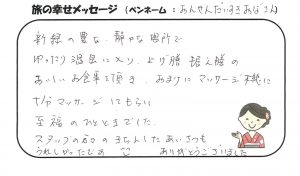 旅の幸せメッセージ（ペンネーム：あんせんだいすきあなさん）
新緑の豊な、静かな場所で
ゆったり温泉に入り、上げ膳 据え膳の
おいしいお食事を頂き、おまけにマッサージ機に
十分マッサージしてもらい
至福のひとときでした。
スタッフの方々のきちんとしたあいさつも
うれしかったです ありがとうございました